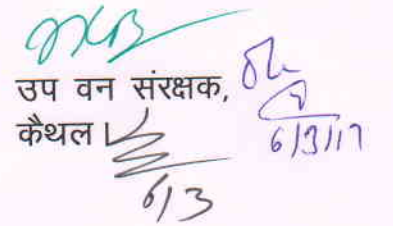 उप वन संरक्षक,
कैथल।
6/3/17
6/3